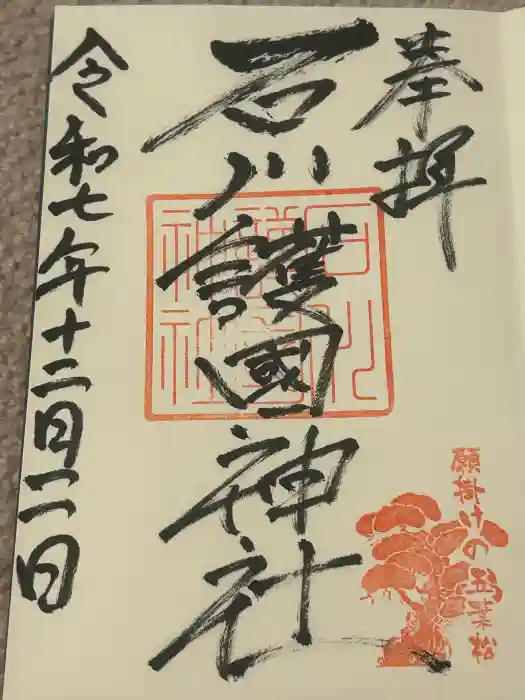 奉拝
石川護國神社
石川護國神社
願掛けの五葉松
令和七年十二月二日